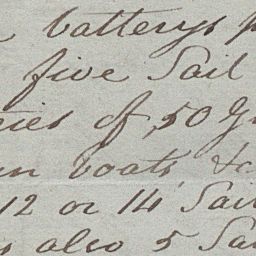 batterys
five Sail
of 50 Gu
boats &c
12 or 14 Sail
also 5 Sa